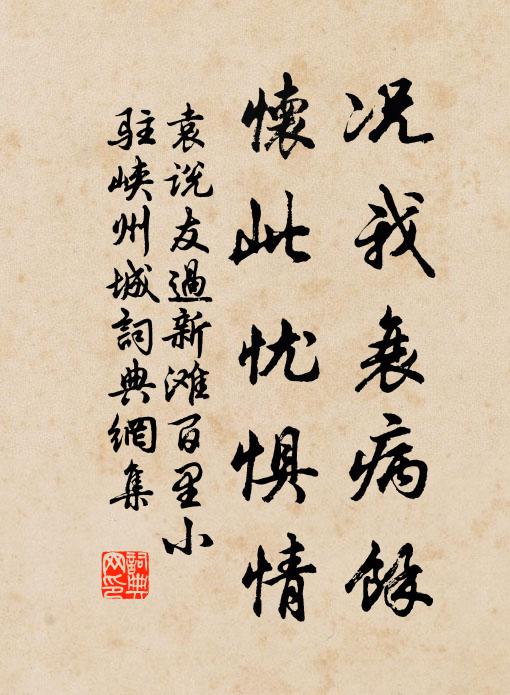 况我衰病餘
懷此忧惧情
袁说友過新滩百里小
駐峡州城詞典網集
詞典
网印